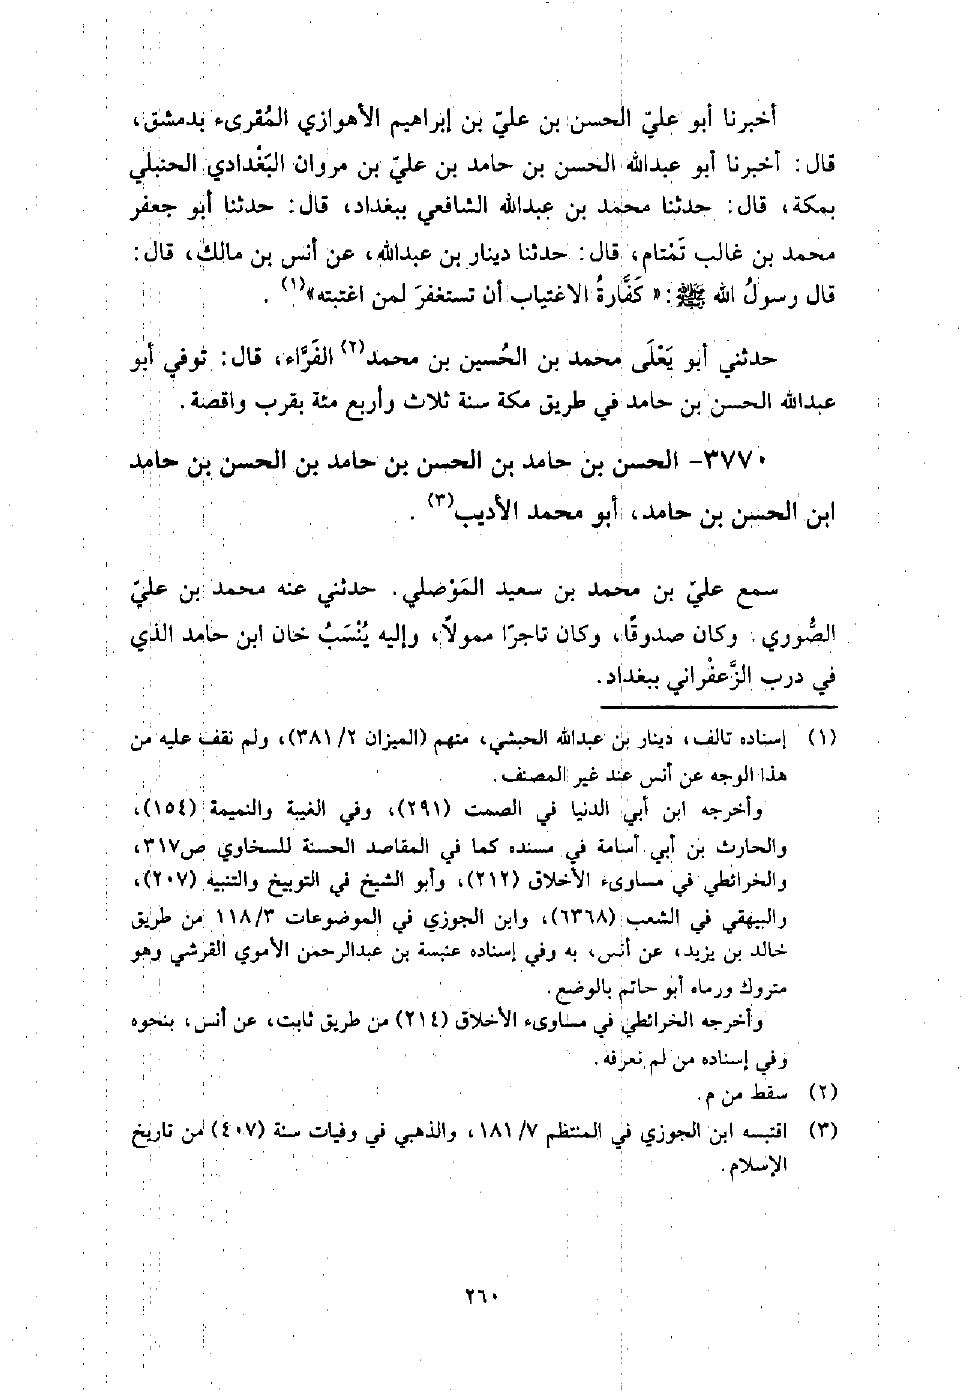 أخبرنا أبو عليّ الحسن بن عليّ بن إبراهيم الأهوازي المُقرىء بدمشق،
قال: أخبرنا أبو عبدالله الحسن بن حامد بن عليّ بن مروان البَغْدادي الحنبلي
بمكة، قال: حدثنا محمد بن عبدالله الشافعي ببغداد، قال: حدثنا أبو جعفر
محمد بن غالب تَمْتام، قال: حدثنا دينار بن عبدالله، عن أنس بن مالك، قال:
قال رسولُ الله ﷺ: «كَفَّارةُ الاغتياب أن تستغفرَ لمن اغتبته»(١).
حدثني أبو يَعْلَى محمد بن الحُسين بن محمد(٢) الفَرَّاء، قال: توفي أبو
عبدالله الحسن بن حامد في طريق مكة سنة ثلاث وأربع مئة بقرب واقصة.
٣٧٧٠- الحسن بن حامد بن الحسن بن حامد بن الحسن بن حامد
ابن الحسن بن حامد، أبو محمد الأديب(٣).
سمع عليّ بن محمد بن سعيد المَوْصلي. حدثني عنه محمد بن عليّ
الصُّوري. وكان صدوقًا، وكان تاجرًا ممولاً، وإليه يُنْسَبُ خان ابن حامد الذي
في درب الزَّعفْراني ببغداد.
(١) إسناده تالف، دينار بن عبدالله الحبشي، متهم (الميزان ٢/ ٣٨١)، ولم نقف عليه من
هذا الوجه عن أنس عند غير المصنف.
وأخرجه ابن أبي الدنيا في الصمت (٢٩١)، وفي الغيبة والنميمة (١٥٤)،
والحارث بن أبي أسامة في مسنده كما في المقاصد الحسنة للسخاوي ص٣١٧،
والخرائطي في مساوىء الأخلاق (٢١٢)، وأبو الشيخ في التوبيخ والتنبيه (٢٠٧)،
والبيهقي في الشعب (٦٣٦٨)، وابن الجوزي في الموضوعات ٣/ ١١٨ من طريق
خالد بن يزيد، عن أنس، به وفي إسناده عنبسة بن عبدالرحمن الأموي القرشي وهو
متروك ورماه أبو حاتم بالوضع.
وأخرجه الخرائطي في مساوىء الأخلاق (٢١٤) من طريق ثابت، عن أنس، بنحوه
وفي إسناده من لم نعرفه.
(٢) سقط من م.
(٣) اقتبسه ابن الجوزي في المنتظم ٧/ ١٨١، والذهبي في وفيات سنة (٤٠٧) من تاريخ
الإسلام.
٢٦٠